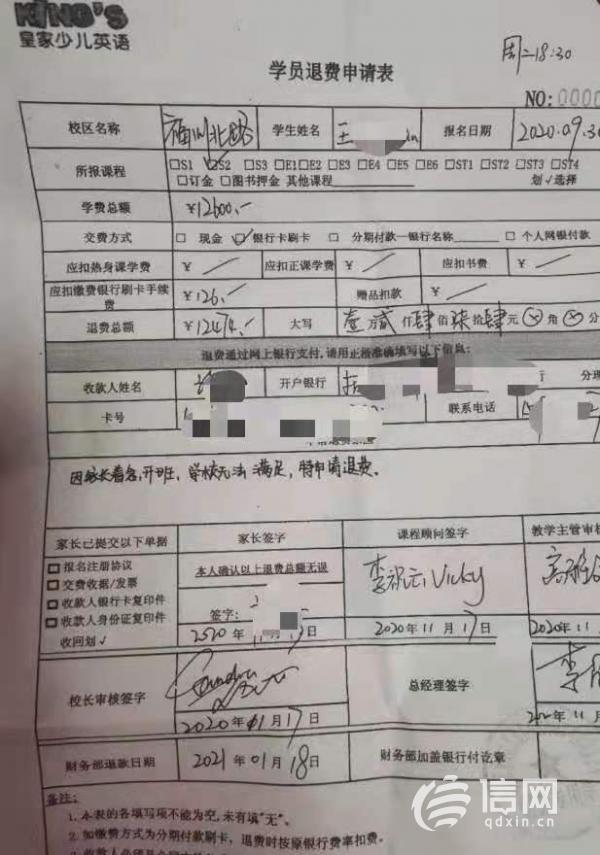 KING'S
皇家少儿英语
周二18:30
学员退费申请表
NO:0000
校区名称 福州北路 学生姓名 王 报名日期 2020.09.30
所报课程 □S1 ☑S2 □S3 □E1□E2 □E3 □E4 □E5 □E6 □ST1 □ST2 □ST3 □ST4
□订金 □图书押金 其他课程 划√选择
学费总额 ¥12600.-
交费方式 □ 现金 ☑银行卡刷卡 □ 分期付款—银行名称 □ 个人网银付款
应扣热身课学费 ¥ / 应扣正课学费 ¥ / 应扣书费 ¥ /
应扣缴费银行刷卡手续费 ¥126.- 赠品扣款 ¥ /
退费总额 ¥12474.- 大写 壹万贰仟肆佰柒拾肆元 ⊗ 角 ⊗ 分
退费通过网上银行支付,请用正楷准确填写以下信息:
收款人姓名 开户银行 分理
卡号 联系电话
因家长着急开班,学校无法满足,特申请退费。
家长已提交以下单据 家长签字 课程顾问签字 教学主管审核
□ 报名注册协议
□ 交费收据/发票
□ 收款人银行卡复印件
□ 收款人身份证复印件
收回划√
本人确认以上退费总额无误
签字:
2020 年 11月17日 2020年11月17日 2020年11
校长审核签字 Sandra 总经理签字
2020年11月17日
财务部退款日期 2021年01月18日 财务部加盖银行付讫章
备注:
1. 本表的各填写项不能为空,未有填"无"。
2. 如缴费方式为分期付款刷卡,退费时按原银行费率扣费。
信网
qdxin.cn